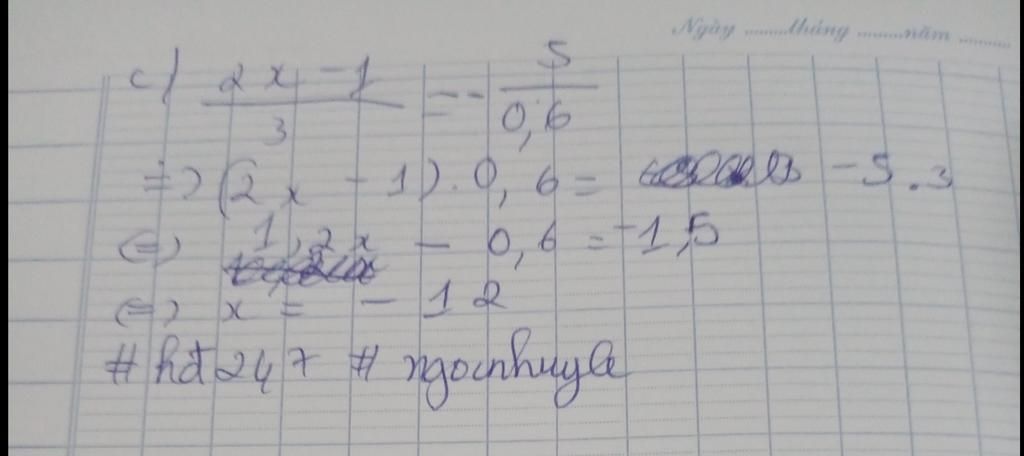 Ngày .........tháng .........năm .........
c) (2x - 1)/3 = - 5/0,6
=> (2x - 1). 0,6 = -5.3
<=> 1,2x - 0,6 = -1,5
<=> x = - 12
# hđ247 # ngocnhuyle